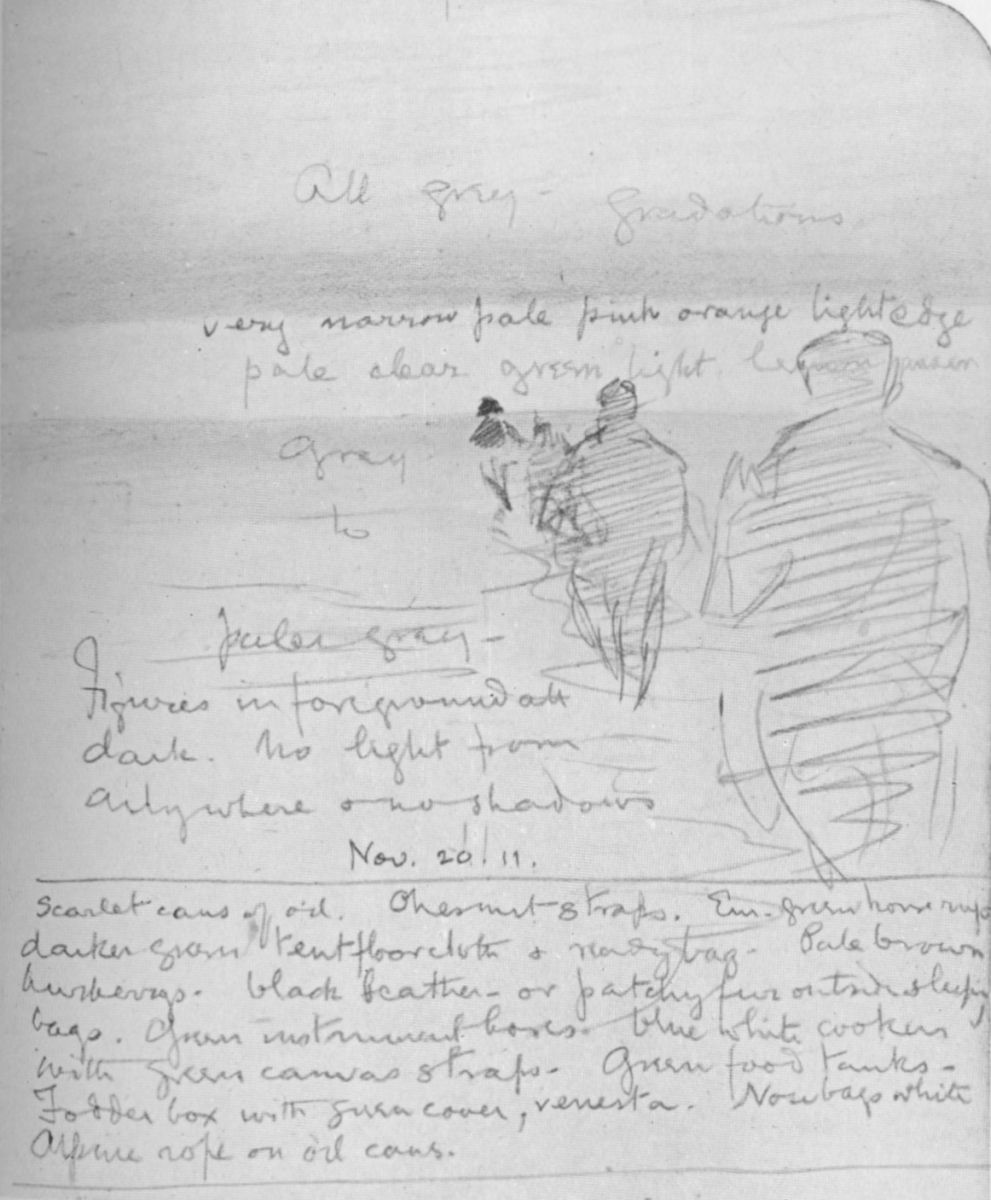 All grey - gradations
very narrow pale pink orange light edge
pale clear green light
Grey
to
paler grey -
Figures in foreground all
dark. No light from
anywhere & no shadows
Nov. 20. 11.
Scarlet cans of oil. Chesnut straps. Em. green horse rugs
darker green tent floorcloth & ready bag - Pale brown
burberrys - black leather - or patchy fur outside sleeping
bags. Green instrument boxes - blue white cookers
with green canvas straps - Green food tanks -
Fodder box with green cover, venesta. Nosebags white
Alpine rope on oil cans.